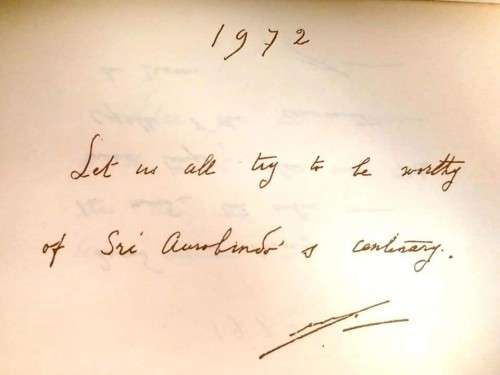 1972
Let us all try to be worthy
of Sri Aurobindo's centenary.